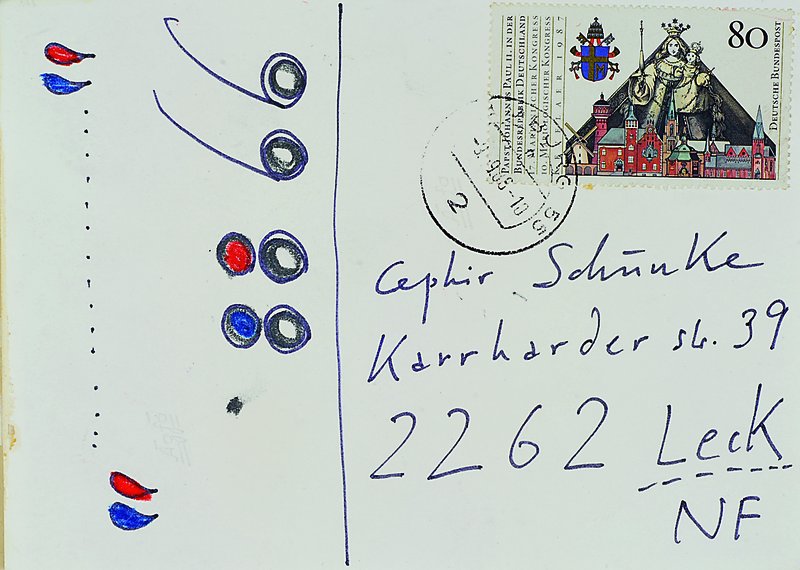 PAPST JOHANNES PAUL II. IN DER
BUNDESREPUBLIK DEUTSCHLAND
17. MARIANISCHER KONGRESS
10. MARIOLOGISCHER KONGRESS
KEVELAER 1987
80
DEUTSCHE BUNDESPOST
2
Cephir Schünke
Karrharder str. 39
2262 Leck
NF